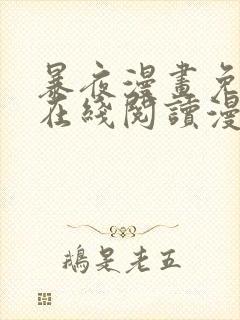 暴夜漫畫免
在綫閱讀漫
鵝是老五